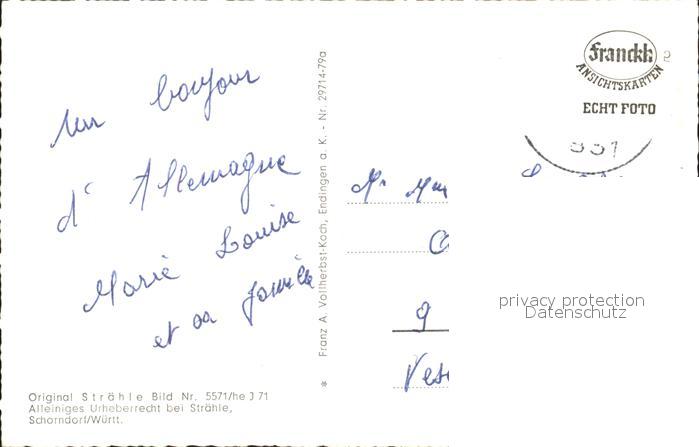 Un bonjour
d'Allemagne
Marie Louise
et sa famille
Original Strähle Bild Nr. 5571/he J 71
Alleiniges Urheberrecht bei Strähle,
Schorndorf/Württ.
* Franz A. Vollherbst-Koch, Endingen a. K. - Nr. 29714-79a
Franckh
ANSICHTSKARTEN
ECHT FOTO
privacy protection
Datenschutz